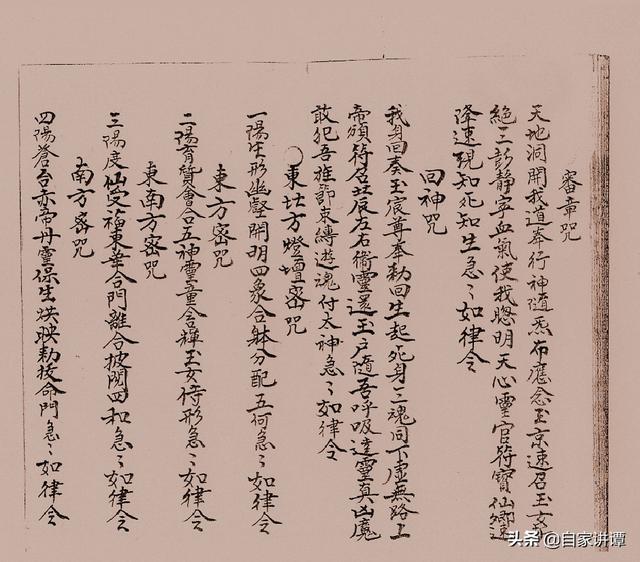 審章咒
天地洞開我道奉行神隨炁布應念玉京速召玉女
絕三彭靜寧血氣使我聰明天心靈官符寶仙
降速現知死知生急〻如律令
回神咒
我身回奏玉宸尊奉勅回生起死身三魂同下虛無路上
帝頒符召北辰左右衛靈還玉戶隨吾呼吸達靈真凶魔
敢犯吾旌節束縛遊魂付太神急〻如律令
東北方燈壇密咒
一陽生形幽壑開明四象合躰分配五何急〻如律令
東方密咒
二陽育質會合五神靈童含輝玉女侍形急〻如律令
東南方密咒
三陽度仙受福東華合門離合披閱四和急〻如律令
南方密咒
四陽蒼台赤帝丹靈保生映勅扶命門急〻如律令
头条@自家讲谭